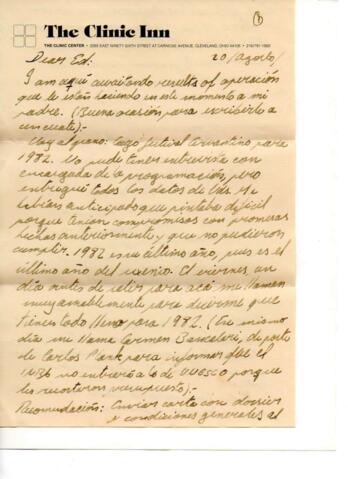 The Clinic Inn
THE CLINIC CENTER • 2065 EAST NINETY-SIXTH STREET AT CARNEGIE AVENUE, CLEVELAND, OHIO 44106 •
Dear Ed: 20/agosto/
I am aquí awaitando results of operación
que le están haciendo en este momento a mi
padre. (Buena ocasión para escribirle a
un cuate).-
Voy al grano: festival cervantino para
1982. No pude tener entrevista con
encargada de la programación, pero
entregué todos los datos de Uds. Me
habían anticipado que pintaba difícil
porque tenían compromisos con promesas
hechas anteriormente y que no pudieron
cumplir. 1982 es su último año, pues es el
último año del sexenio. El viernes, un
día antes de salir para acá me llaman
muy amablemente para decirme que
tienes todo lleno para 1982. (Ese mismo
día me llama Carmen de parte
de Carlos para informar que el
no entrará a lo de UNESCO porque
les recortaron presupuesto):-
Recomendación: Enviar carta con dossier
y condiciones generales al